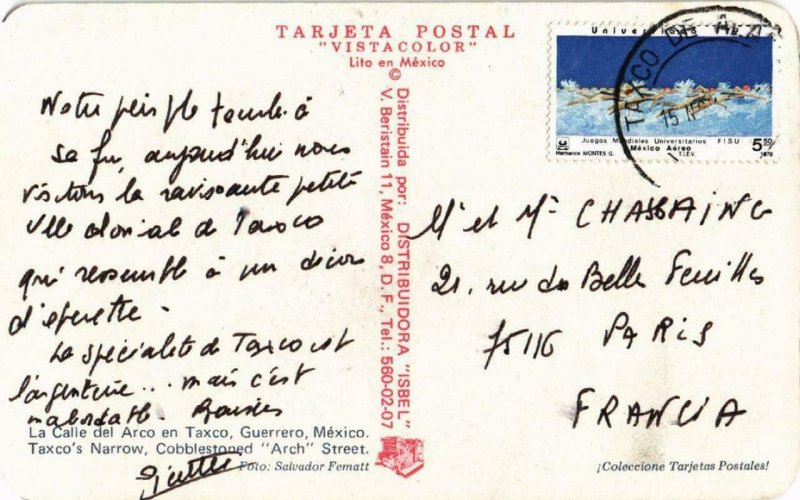 TARJETA POSTAL
"VISTACOLOR"
Lito en México
©
Distribuida por: DISTRIBUIDORA "ISBEL"
V. Beristain 11, México 8, D. F., Tel.: 560-02-07
Universiada
Juegos Mundiales Universitarios FISU
México Aéreo
5.50
Hermance MONTES G. T.I.E.V. 1979
TAXCO DE ALA
15
Notre périple touche à
sa fin, aujourd'hui nous
visitons la ravissante petite
ville coloniale de Taxco
qui ressemble à un décor
d'opérette.
La spécialité de Taxco est
l'argenterie... mais c'est
inabordable. Baisers
M et Me CHASSAING
21, rue des Belles Feuilles
75116 PARIS
FRANCIA
La Calle del Arco en Taxco, Guerrero, México.
Taxco's Narrow, Cobblestoned "Arch" Street.
Foto: Salvador Fematt
¡Coleccione Tarjetas Postales!